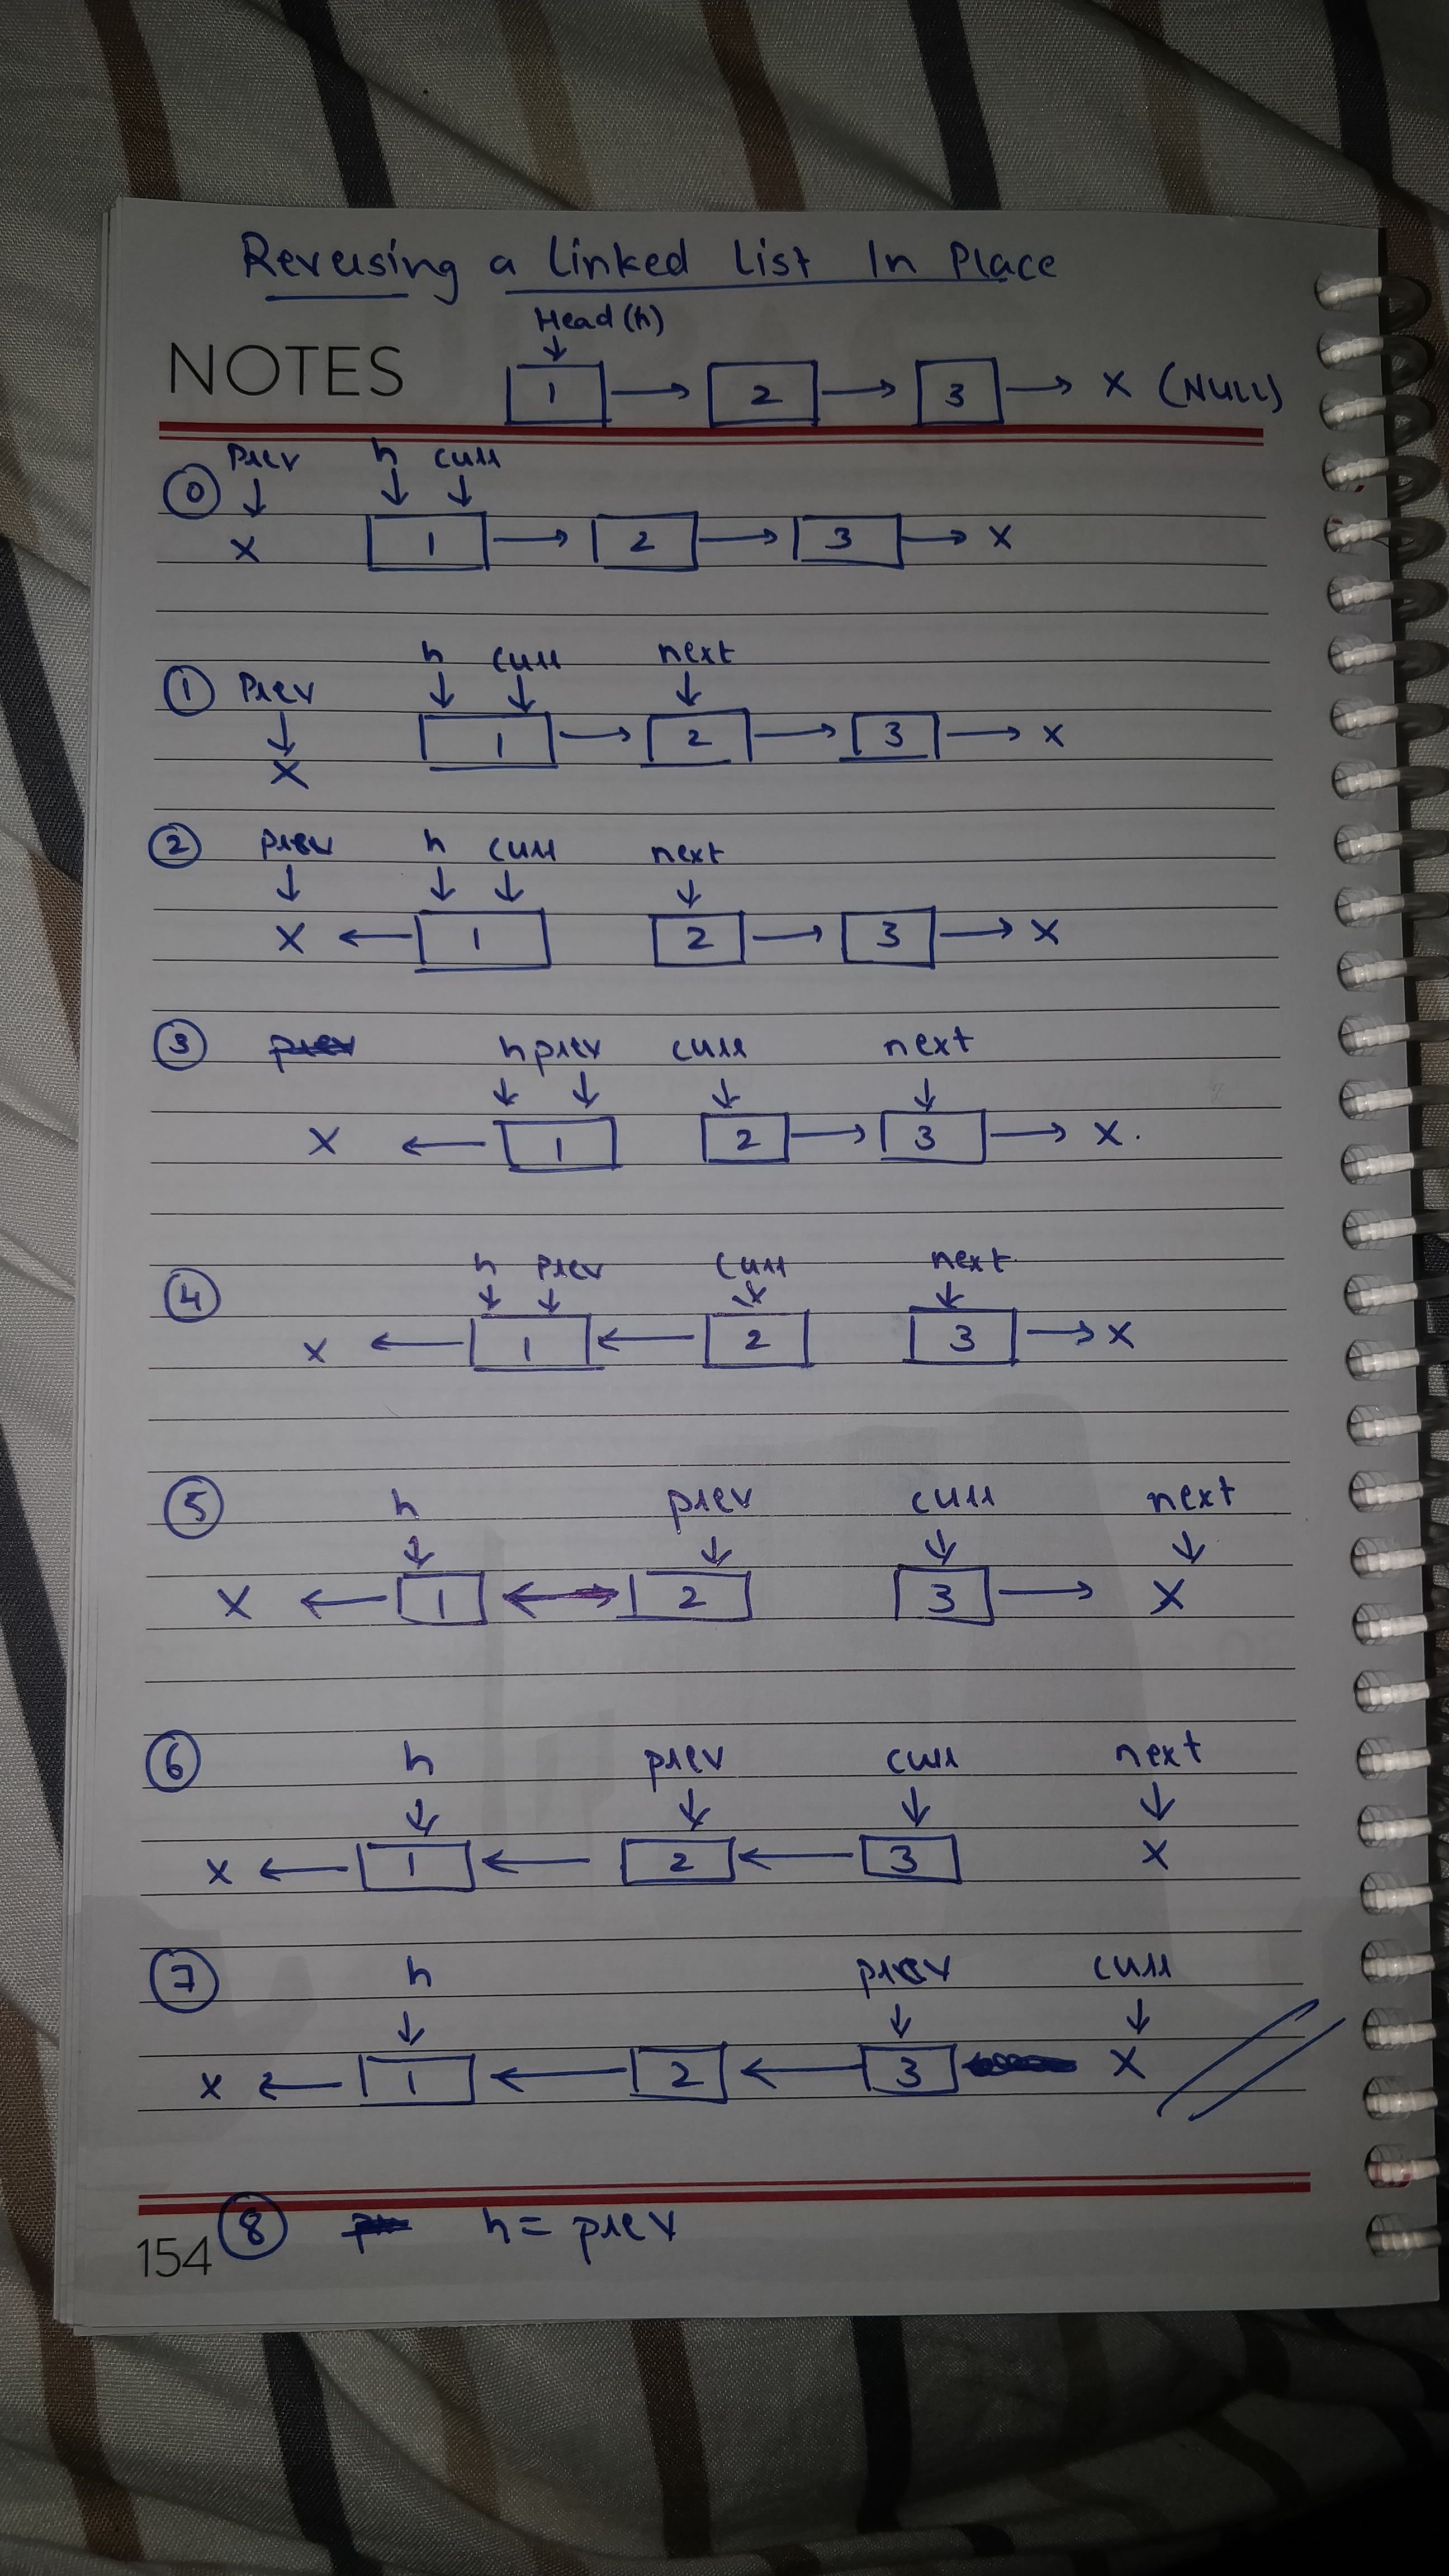 Reversing a Linked List In Place
Head (h)
NOTES
1 → 2 → 3 → X (NULL)
prev h curr
0
X 1 → 2 → 3 → X
h curr next
1 Prev
1 → 2 → 3 → X
X
2 prev h curr next
X ← 1 2 → 3 → X
3 prev h prev curr next
X ← 1 2 → 3 → X.
h prev curr next
4
X ← 1 ← 2 3 → X
5 h prev curr next
X ← 1 ← 2 3 → X
6 h prev curr next
X ← 1 ← 2 ← 3 X
7 h prev curr
X ← 1 ← 2 ← 3 X
8 h = prev
154